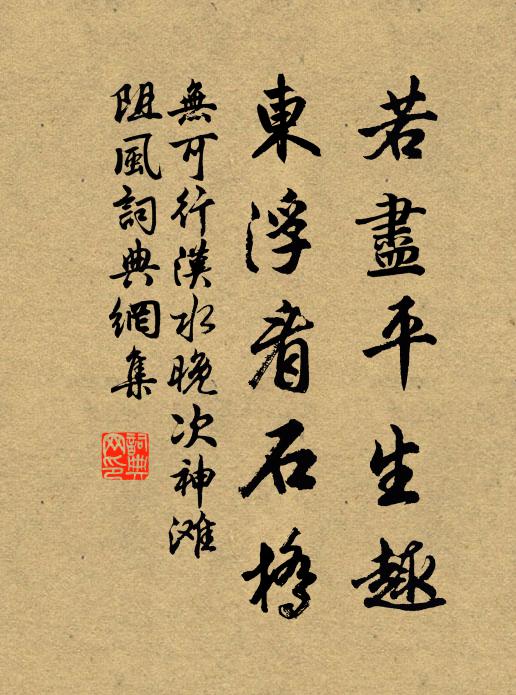 若盡平生趣
東浮看石橋
無可行漢水晚次神滩
阻風詞典網集
詞典
网印